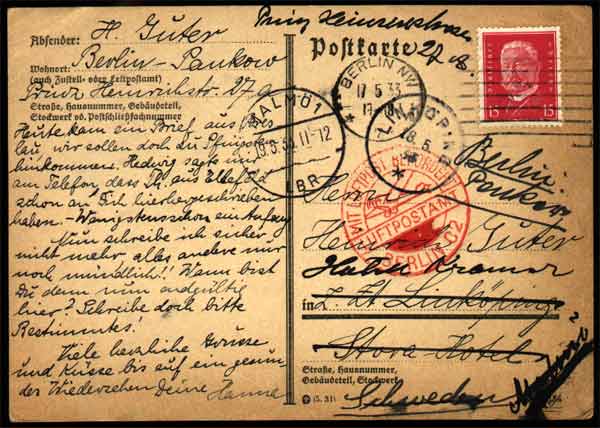 Absender: H. Güter
Wohnort: Berlin-Pankow
(auch Zustell- oder Leitpostamt)
Prinz Heinrichstr. 27a
Straße, Hausnummer, Gebäudeteil,
Stockwerk od. Postschließfachnummer
Heute kam ein Brief aus
wir sollen doch zu Pfingsten
hinkommen. Hedwig sagte mir
am Telefon, dass
schon an Dich hierhergeschrieben
haben. -
Nun schreibe ich sicher
nicht mehr, alles andere nur
noch mündlich! Wann bist
Du denn nun endgültig
hier? Schreibe doch bitte
Bestimmtes!
Viele herzliche Grüsse
und Küsse bis auf ein gesun
des Wiedersehen Deine Hanna
Postkarte
15 15
BERLIN NW
17.5.33
MALMÖ 1
11-12
BR
18.5.
MIT LUFTPOST BEFÖRDERT
LUFTPOSTAMT
BERLIN C2
Berlin-
Pankow
Herrn
Heinrich Güter
Hotel Kramer
in z. Zt. Linköping
Stora Hotel
Malmö
Straße, Hausnummer,
Gebäudeteil, Stockwerk
Schweden
(5. 31)